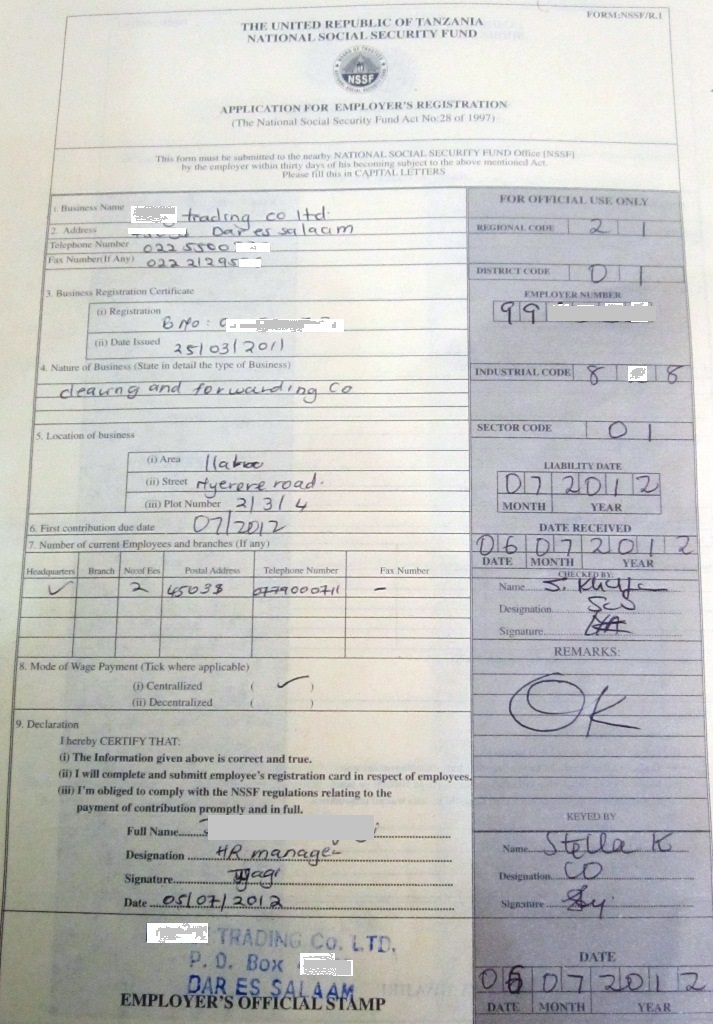 FORM:NSSF/R.1
THE UNITED REPUBLIC OF TANZANIA
NATIONAL SOCIAL SECURITY FUND
NSSF
APPLICATION FOR EMPLOYER'S REGISTRATION
(The National Social Security Fund Act No:28 of 1997)
This form must be submitted to the nearby NATIONAL SOCIAL SECURITY FUND Office [NSSF]
by the employer within thirty days of his becoming subject to the above mentioned Act.
Please fill this in CAPITAL LETTERS
1. Business Name trading co ltd.
2. Address Dar es salaam
Telephone Number 022 5500
Fax Number(If Any) 022 21295
3. Business Registration Certificate
(i) Registration No:
(ii) Date Issued 25/03/2011
4. Nature of Business (State in detail the type of Business)
clearing and forwarding Co
5. Location of business
(i) Area
(ii) Street Nyerere road.
(iii) Plot Number 2/3/4
6. First contribution due date 07/2012
7. Number of current Employees and branches (If any)
Headquarters Branch No:of Ees Postal Address Telephone Number Fax Number
✓ 2 45038 0779000711 –
8. Mode of Wage Payment (Tick where applicable)
(i) Centrallized ( ✓ )
(ii) Decentralized ( )
9. Declaration
I hereby CERTIFY THAT:
(i) The Information given above is correct and true.
(ii) I will complete and submitt employee's registration card in respect of employees.
(iii) I'm obliged to comply with the NSSF regulations relating to the
payment of contribution promptly and in full.
Full Name
Designation HR manager
Signature
Date 05/07/2012
TRADING Co. LTD.
P. O. Box
DAR ES SALAAM
EMPLOYER'S OFFICIAL STAMP
FOR OFFICIAL USE ONLY
REGIONAL CODE 2 1
DISTRICT CODE 0 1
EMPLOYER NUMBER
99
INDUSTRIAL CODE 8 8
SECTOR CODE 0 1
LIABILITY DATE
07 2012
MONTH YEAR
DATE RECEIVED
06 07 2012
DATE MONTH YEAR
CHECKED BY:
Name S.
Designation
Signature
REMARKS:
OK
KEYED BY
Name Stella K
Designation CO
Signature
DATE
06 07 2012
DATE MONTH YEAR